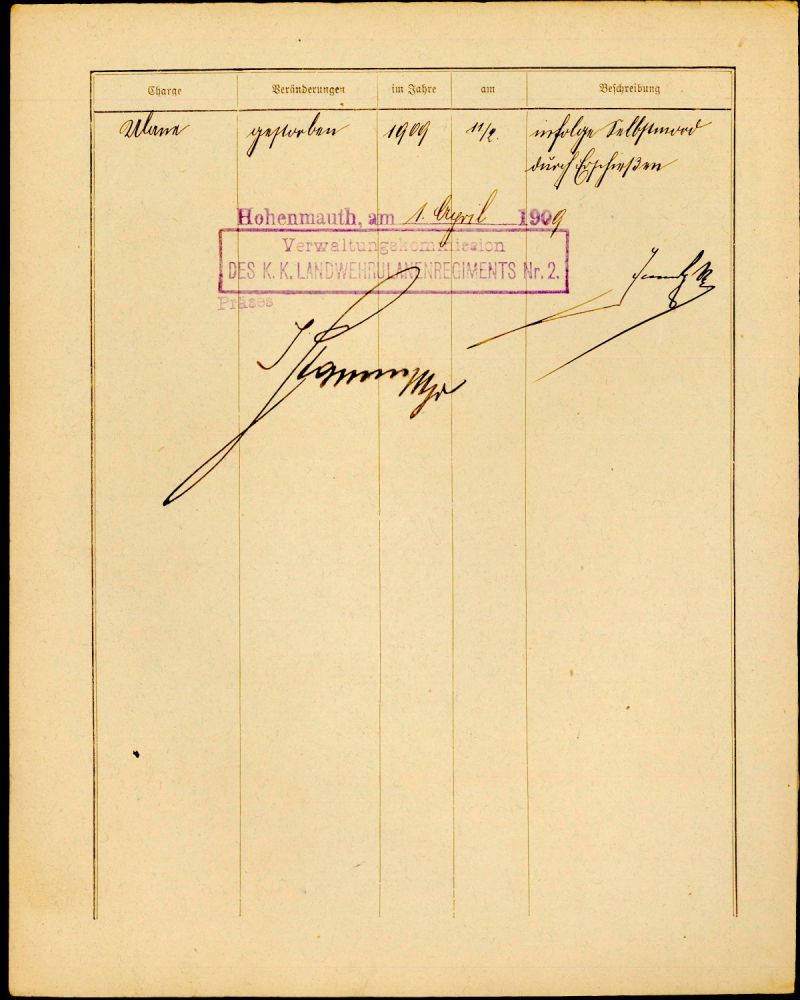 Charge Veränderungen im Jahre am Beschreibung
Ulane gestorben 1909 11/2. infolge Selbstmord
durch Erschießen
Hohenmauth, am 1. April 1909
Verwaltungskommission
DES K. K. LANDWEHRULANENREGIMENTS Nr. 2.
Präses